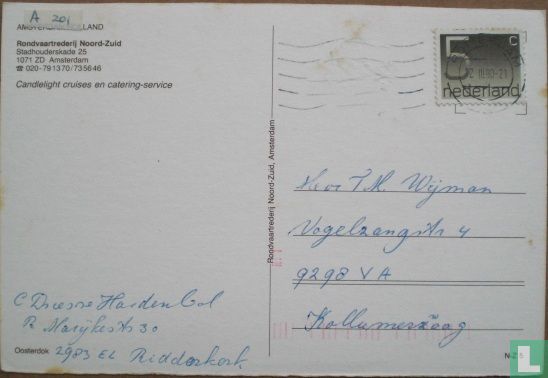 A 201
AMSTERDAM HOLLAND
Rondvaartrederij Noord-Zuid
Stadhouderskade 25
1071 ZD Amsterdam
☎ 020-791370/735646
Candlelight cruises en catering-service
5 c
nederland
III.90-21
Rondvaartrederij Noord-Zuid, Amsterdam
Heer T.M. Wijman
Vogelzangstr 4
9298 VA
Kollumerzwaag
C Driesse Hardenbol
Pr Marijkestr 30
2983 EL Ridderkerk
Oosterdok
N-Z 5